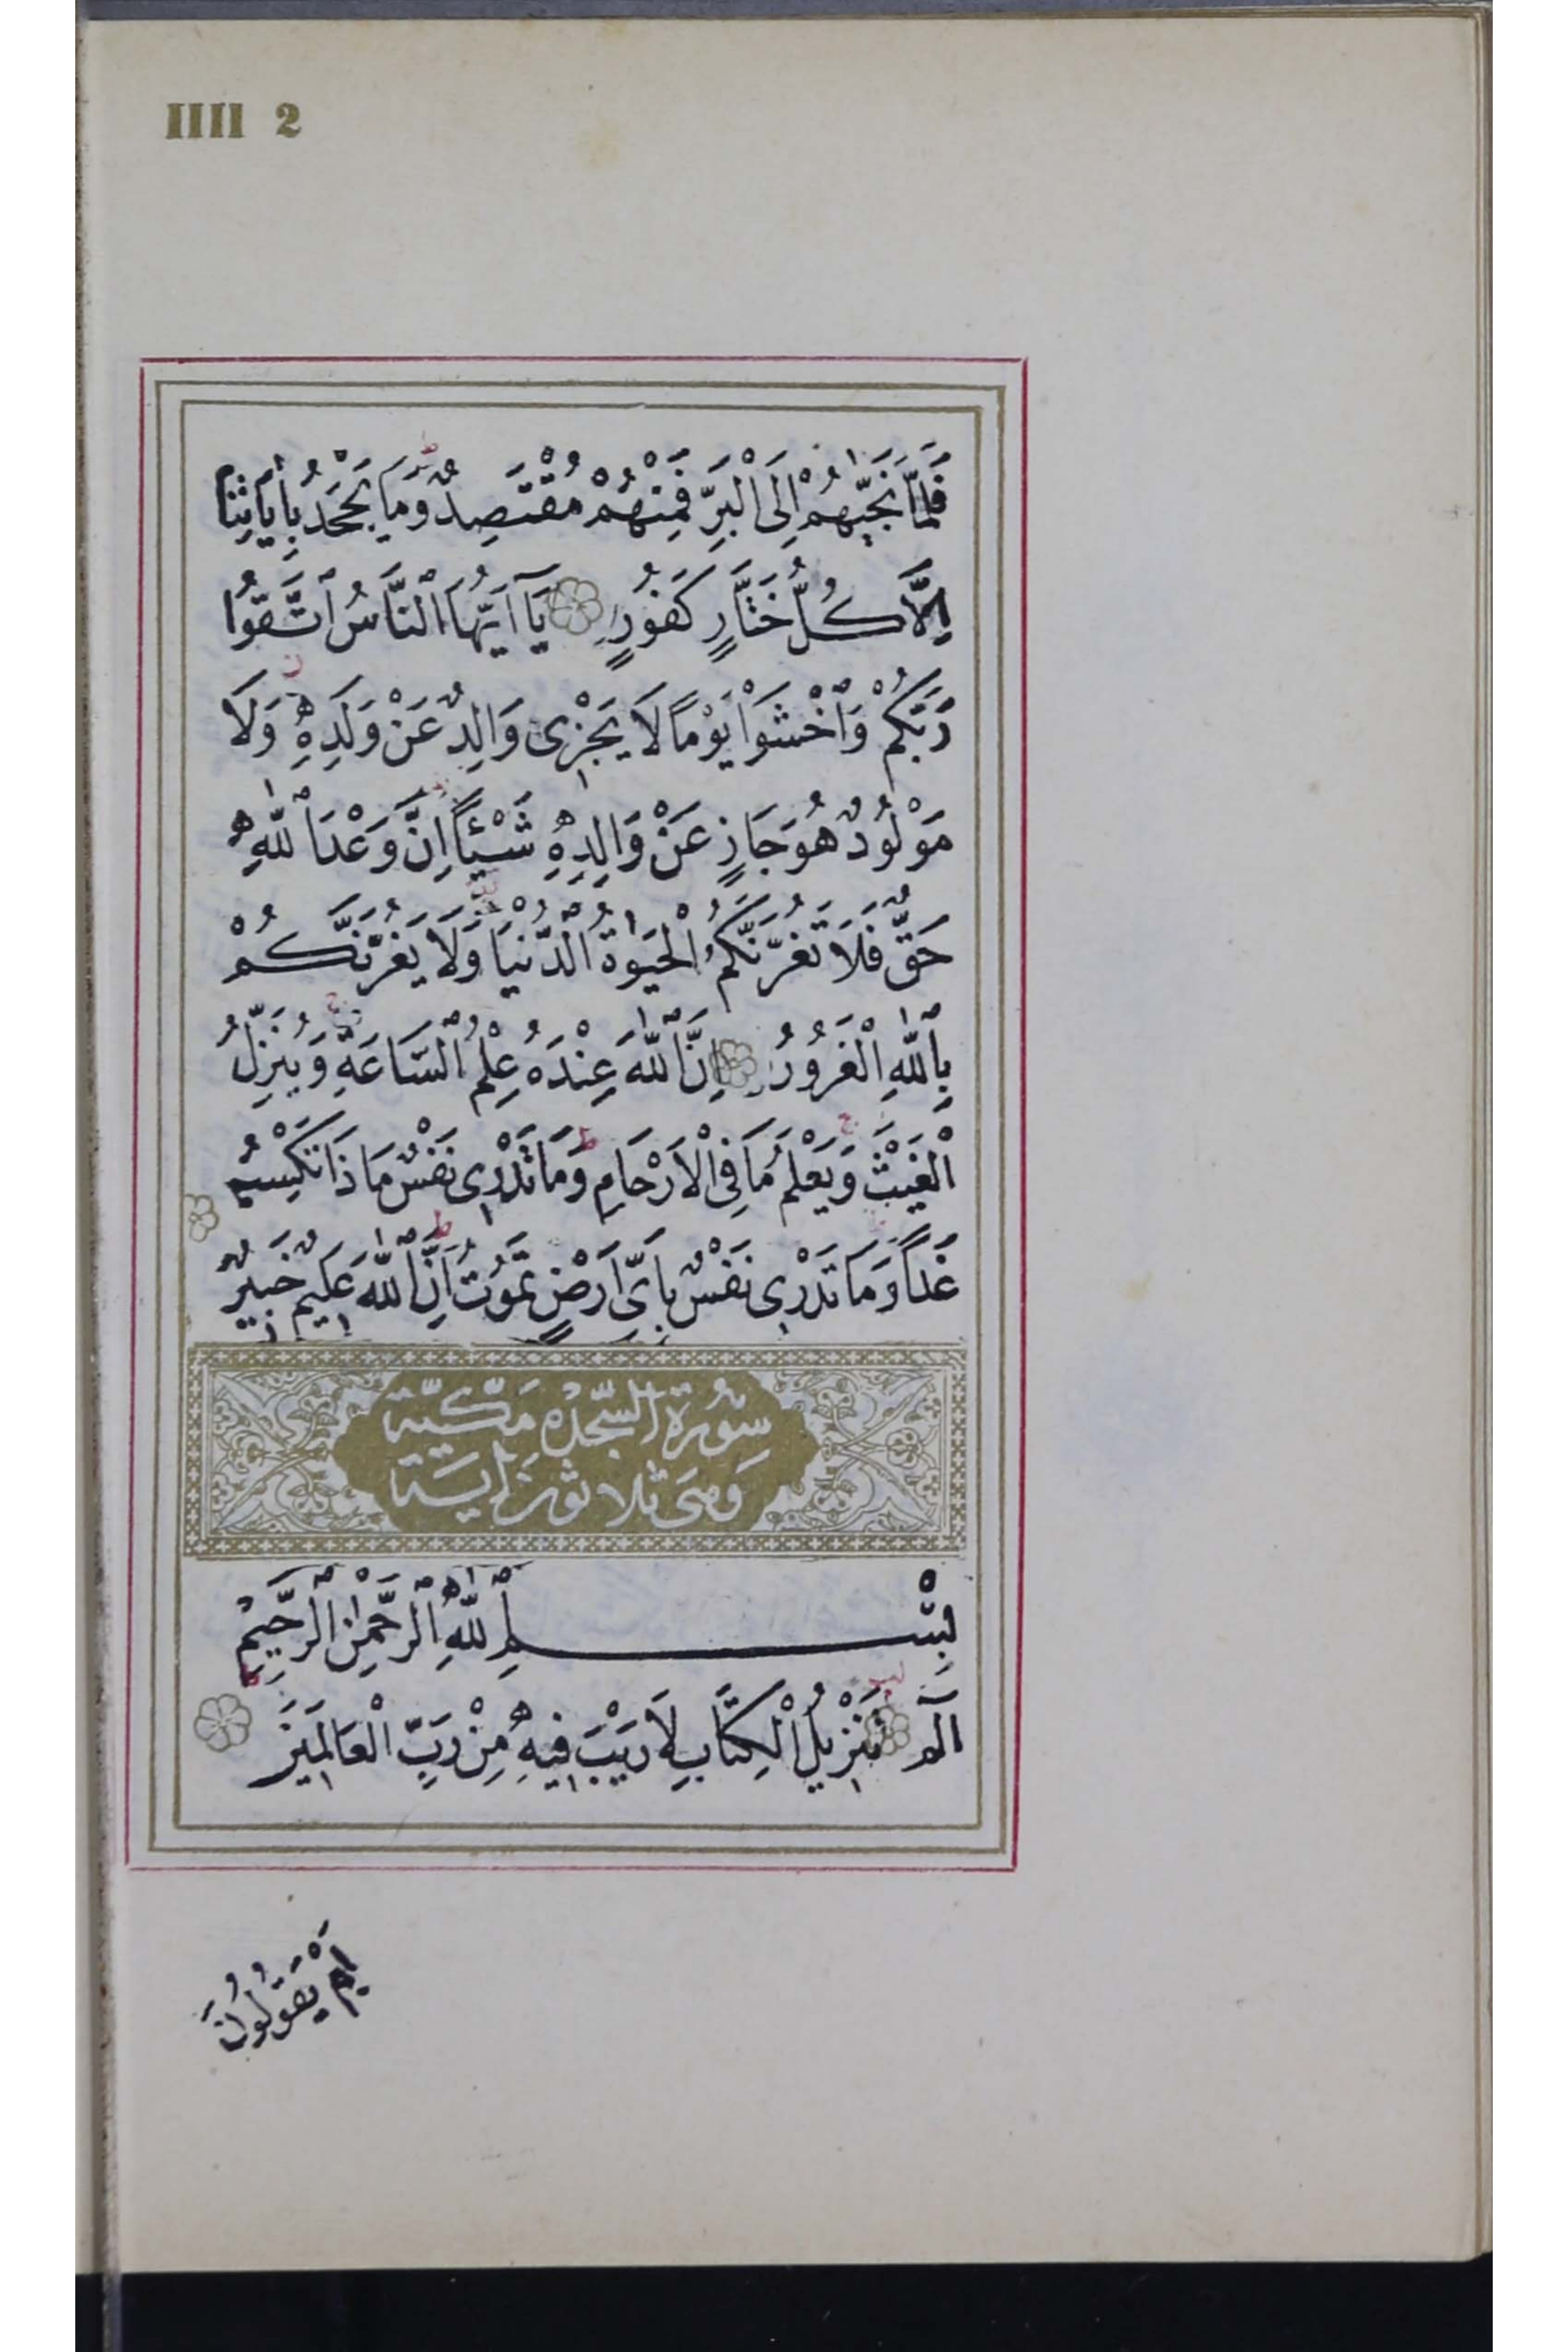 IIII 2
فَلَمَّا نَجّٰيهُمْ اِلَى الْبَرِّ فَمِنْهُمْ مُقْتَصِدٌ وَمَا يَجْحَدُ بِاٰيَاتِنَا
اِلَّا كُلُّ خَتَّارٍ كَفُورٍ يَآ اَيُّهَا النَّاسُ اتَّقُوا
رَبَّكُمْ وَاخْشَوْا يَوْمًا لَا يَجْزِى وَالِدٌ عَنْ وَلَدِهِ وَلَا
مَوْلُودٌ هُوَ جَازٍ عَنْ وَالِدِهِ شَيْئًا اِنَّ وَعْدَ اللّٰهِ
حَقٌّ فَلَا تَغُرَّنَّكُمُ الْحَيٰوةُ الدُّنْيَا وَلَا يَغُرَّنَّكُمْ
بِاللّٰهِ الْغَرُورُ اِنَّ اللّٰهَ عِنْدَهُ عِلْمُ السَّاعَةِ وَيُنَزِّلُ
الْغَيْثَ وَيَعْلَمُ مَا فِى الْاَرْحَامِ وَمَا تَدْرِى نَفْسٌ مَاذَا تَكْسِبُ
غَدًا وَمَا تَدْرِى نَفْسٌ بِاَىِّ اَرْضٍ تَمُوتُ اِنَّ اللّٰهَ عَلِيمٌ خَبِيرٌ
سُورَةُ السَّجْدَه مَكِّيَّة
وَهِىَ ثلاثون اٰيَة
بِسْمِ اللّٰهِ الرَّحْمٰنِ الرَّحِيمِ
الٓمٓ تَنْزِيلُ الْكِتَابِ لَا رَيْبَ فِيهِ مِنْ رَبِّ الْعَالَمِينَ
اَمْ يَقُولُونَ